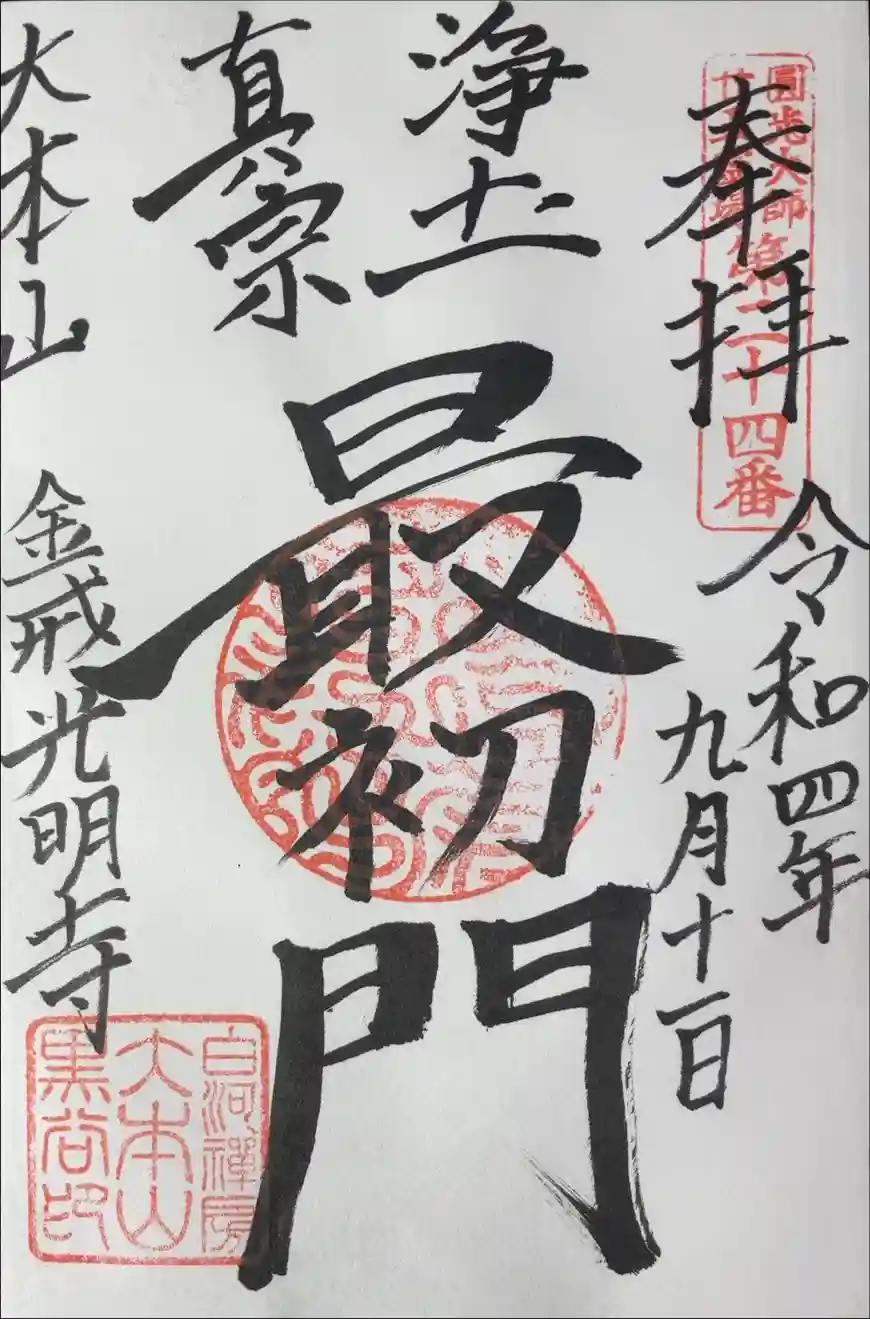 奉拝
圓光大師
廿五霊場
第二十四番
令和四年
九月十一日
浄土
真宗
最初門
大本山
金戒光明寺
白河禅房
大本山
黒谷印